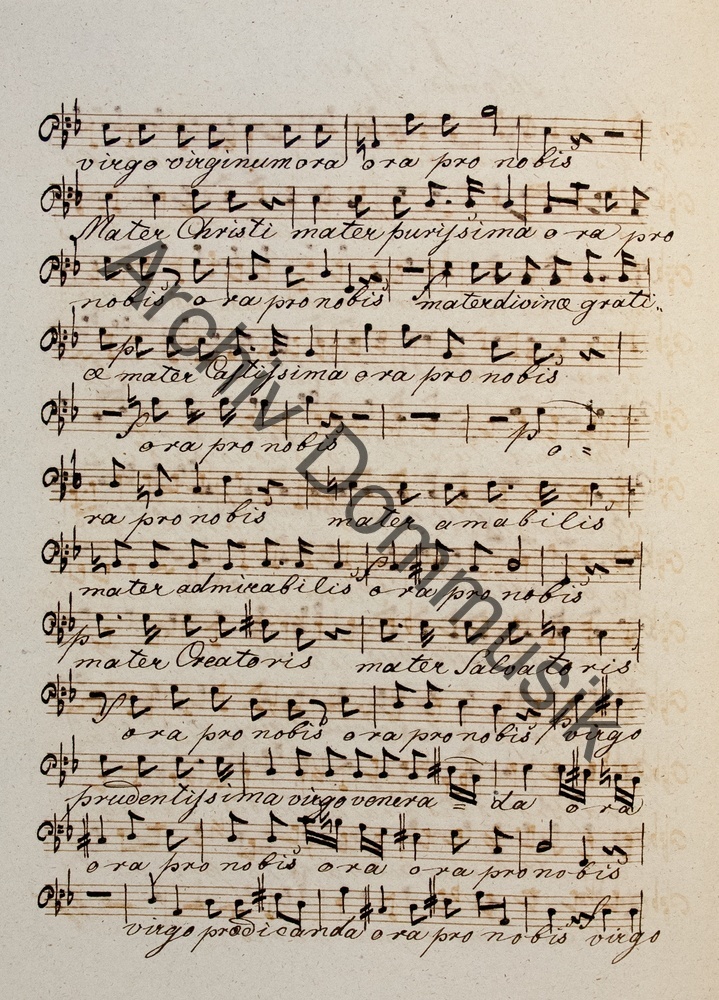 virgo virginum ora ora pro nobis
Mater Christi mater purissima o-ra pro
nobis ora pro nobis mater divinæ grati-
æ mater Castissima ora pro nobis
ora pro nobis o =
ra pro nobis mater amabilis
mater admirabilis ora pro nobis
mater Creatoris mater Salvatoris
ora pro nobis ora pro nobis virgo
prudentissima virgo venera = da ora
ora pro nobis ora ora pro nobis
virgo prædicanda ora pro nobis virgo
Archiv Dommusik